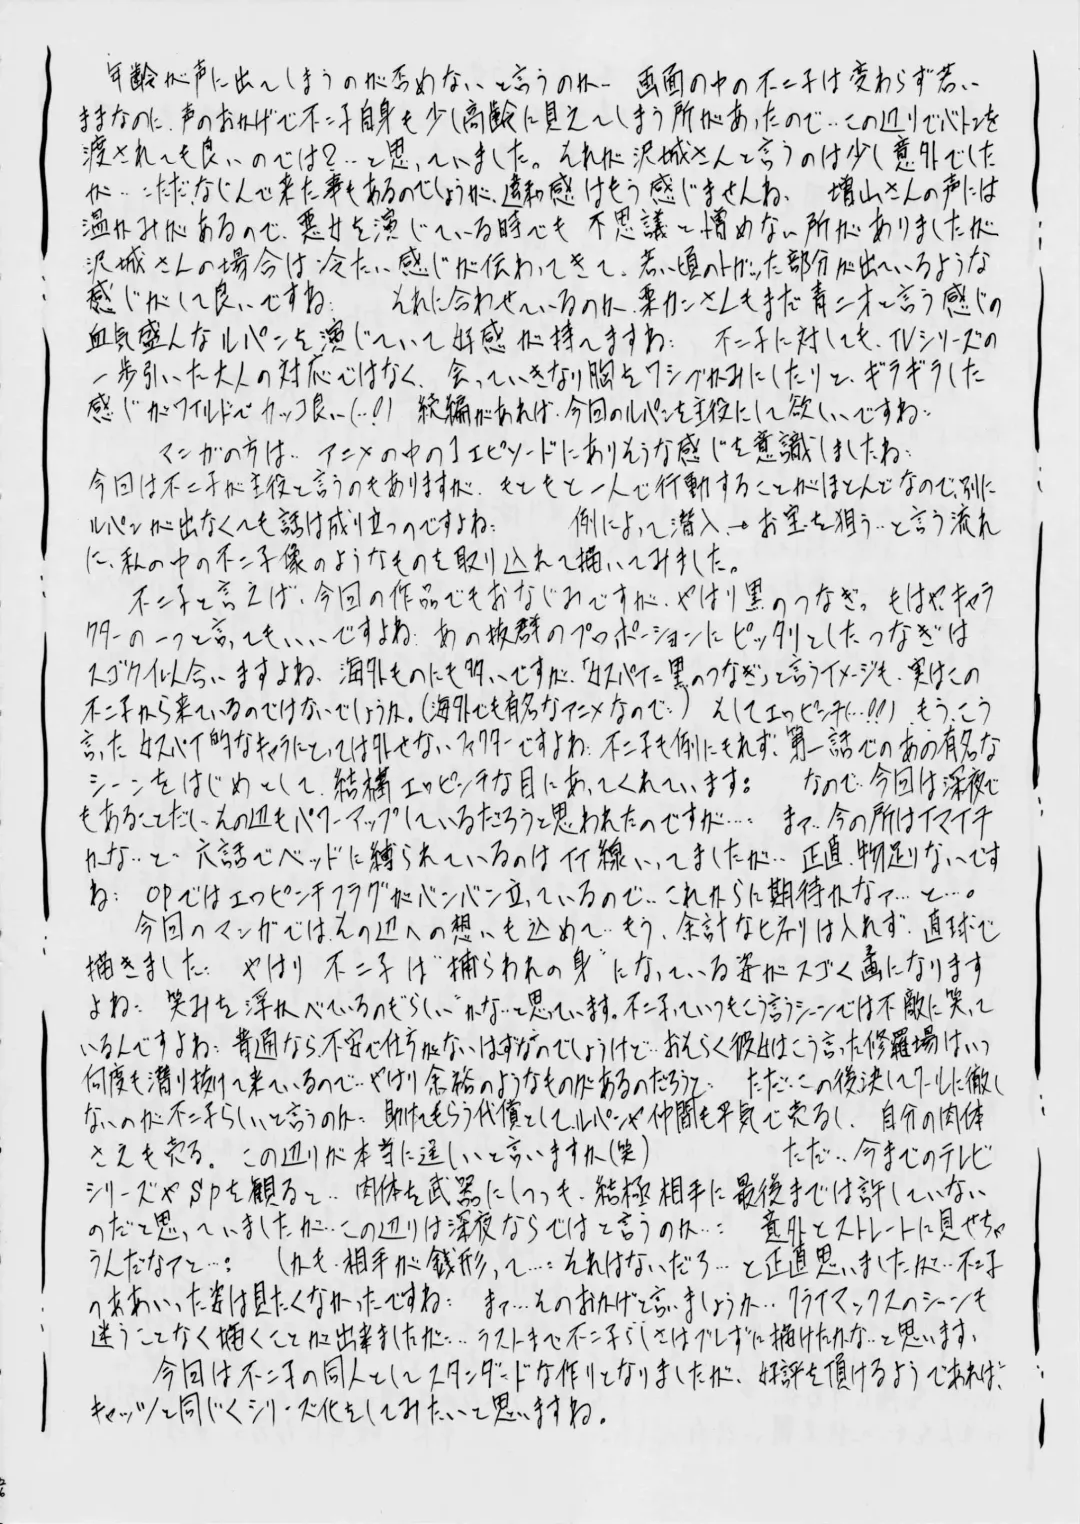 年齢が声に出てしまうのが否めないと言うのか… 画面の中の不二子は変わらず若い
ままなのに、声のおかげで不二子自身も少し高齢に見えてしまう所があったので…この辺りでバトンを
渡されても良いのでは?…と思っていました。それが沢城さんと言うのは少し意外でした
が…ただ、なじんで来た事もあるのでしょうが、違和感はもう感じませんね、 増山さんの声には
温かみがあるので、悪女を演じている時でも 不思議と憎めない所がありましたが
沢城さんの場合は冷たい感じが伝わってきて、若い頃のトガッた部分が出ているような
感じがして良いですね: それに合わせているのか、栗カンさんもまだ青二才と言う感じの
血気盛んなルパンを演じていて好感が持てますね: 不二子に対しても、TVシリーズの
一歩引いた大人の対応ではなく、会っていきなり胸をワシヅかみにしたりと、ギラギラした
感じがワイルドでカッコ良い(…!!) 続編があれば、今回のルパンを主役にして欲しいですね:
マンガの方は… アニメの中の1エピソードにありそうな感じを意識しましたね:
今回は不二子が主役と言うのもありますが、もともと一人で行動することがほとんどなので、別に
ルパンが出なくても話は成り立つのですよね: 例によって潜入→お宝を狙う…と言う流れ
に、私の中の不二子像のようなものを取り込れて描いてみました。
不二子と言えば、今回の作品でもおなじみですが、やはり黒のつなぎっ もはや、キャラ
クターの一つと言ってもいいですよね: あの抜群のプロポーションにピッタリとしたつなぎは
スゴク似合いますよね、海外ものにも多いですが、「女スパイ=黒のつなぎ」と言うイメージも、実はこの
不二子から来ているのではないでしょうか。(海外でも有名なアニメなので…) そしてエッピンチ(…!!!) もう、こう
言った女スパイ的なキャラにとっては外せないファクターですよね: 不二子も例にもれず、第一話でのあの有名な
シーンをはじめとして、結構エッピンチな目にあってくれています: なので、今回は深夜で
もあることだし、その辺もパワーアップしているだろうと思われたのですが…: まァ…今の所はイマイチ
かな…と… 六話でベッドに縛られているのはイイ線いってましたが… 正直、物足りないです
ね: OPではエッピンチフラグがバンバン立っているので…これからに期待かなァ…と…。
今回のマンガでは、その辺への想いも込めて… もう、余計なヒネリは入れず、直球で
描きました: やはり 不二子は“捕らわれの身”になっている姿がスゴく画になります
よね: 笑みを浮かべているのも“らしい”かな…と思っています。不二子っていつもこう言うシーンでは不敵に笑って
いるんですよね: 普通なら、不安で仕方がないはずなのでしょうけど…おそらく彼女はこう言った修羅場はいつ
何度も潜り抜けて来ているので…やはり余裕のようなものがあるのだろうと: ただ…この後決してクールに徹し
ないのが不二子らしいと言うのか: 助けてもらう代償として、ルパンや仲間も平気で売るし、自分の肉体
さえも売る。この辺りが本当に逞しいと言いますか(笑) ただ…今までのテレビ
シリーズやSPを観ると… 肉体を武器にしつつも、結極相手に最後までは許していない
のだと思っていましたが…この辺りは深夜ならではと言うのか…: 意外とストレートに見せちゃ
うんだなァと…: しかも、相手が銭形って…: それはないだろ…と正直思いましたがで…不二子
のああいった姿は見たくなかったですね: まァ…そのおかげと言いましょうか… クライマックスのシーンも
迷うことなく描くことが出来ましたが… ラストまで不二子らしさはブレずに描けたかな…と思います、
今回は不二子の同人としてスタンダードな作りとなりましたが、好評を頂けるようであれば、
キャッツと同じくシリーズ化をしてみたいと思いますね。